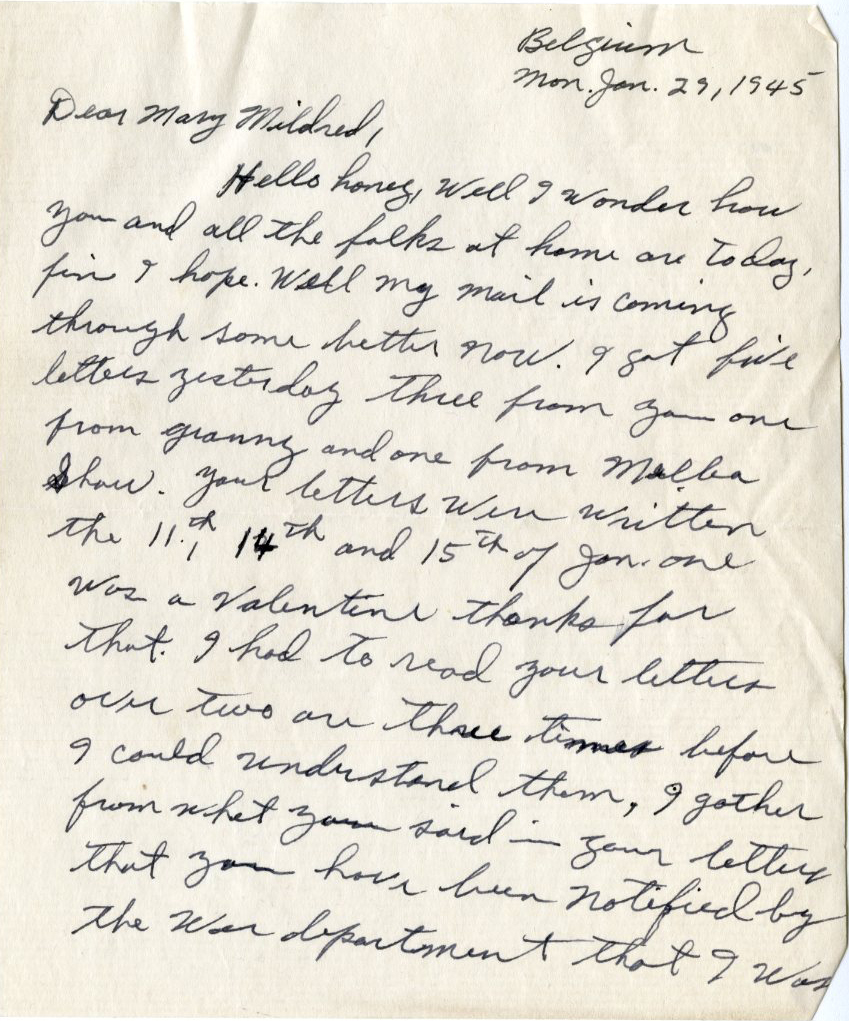 Belgium
Mon. Jan. 29, 1945
Dear Mary Mildred,
Hello honey, Well I wonder how
you and all the folks at home are today,
fine I hope. Well my mail is coming
through some better now. I got five
letters yesterday three from you one
from granny and one from Melba
Show. Your letters were written
the 11th, 14th and 15th of Jan. one
was a Valentine thanks for
that. I had to read your letters
over two are three times before
I could understand them, I gather
from what you said in your letters
that you have been notified by
the War department that I was